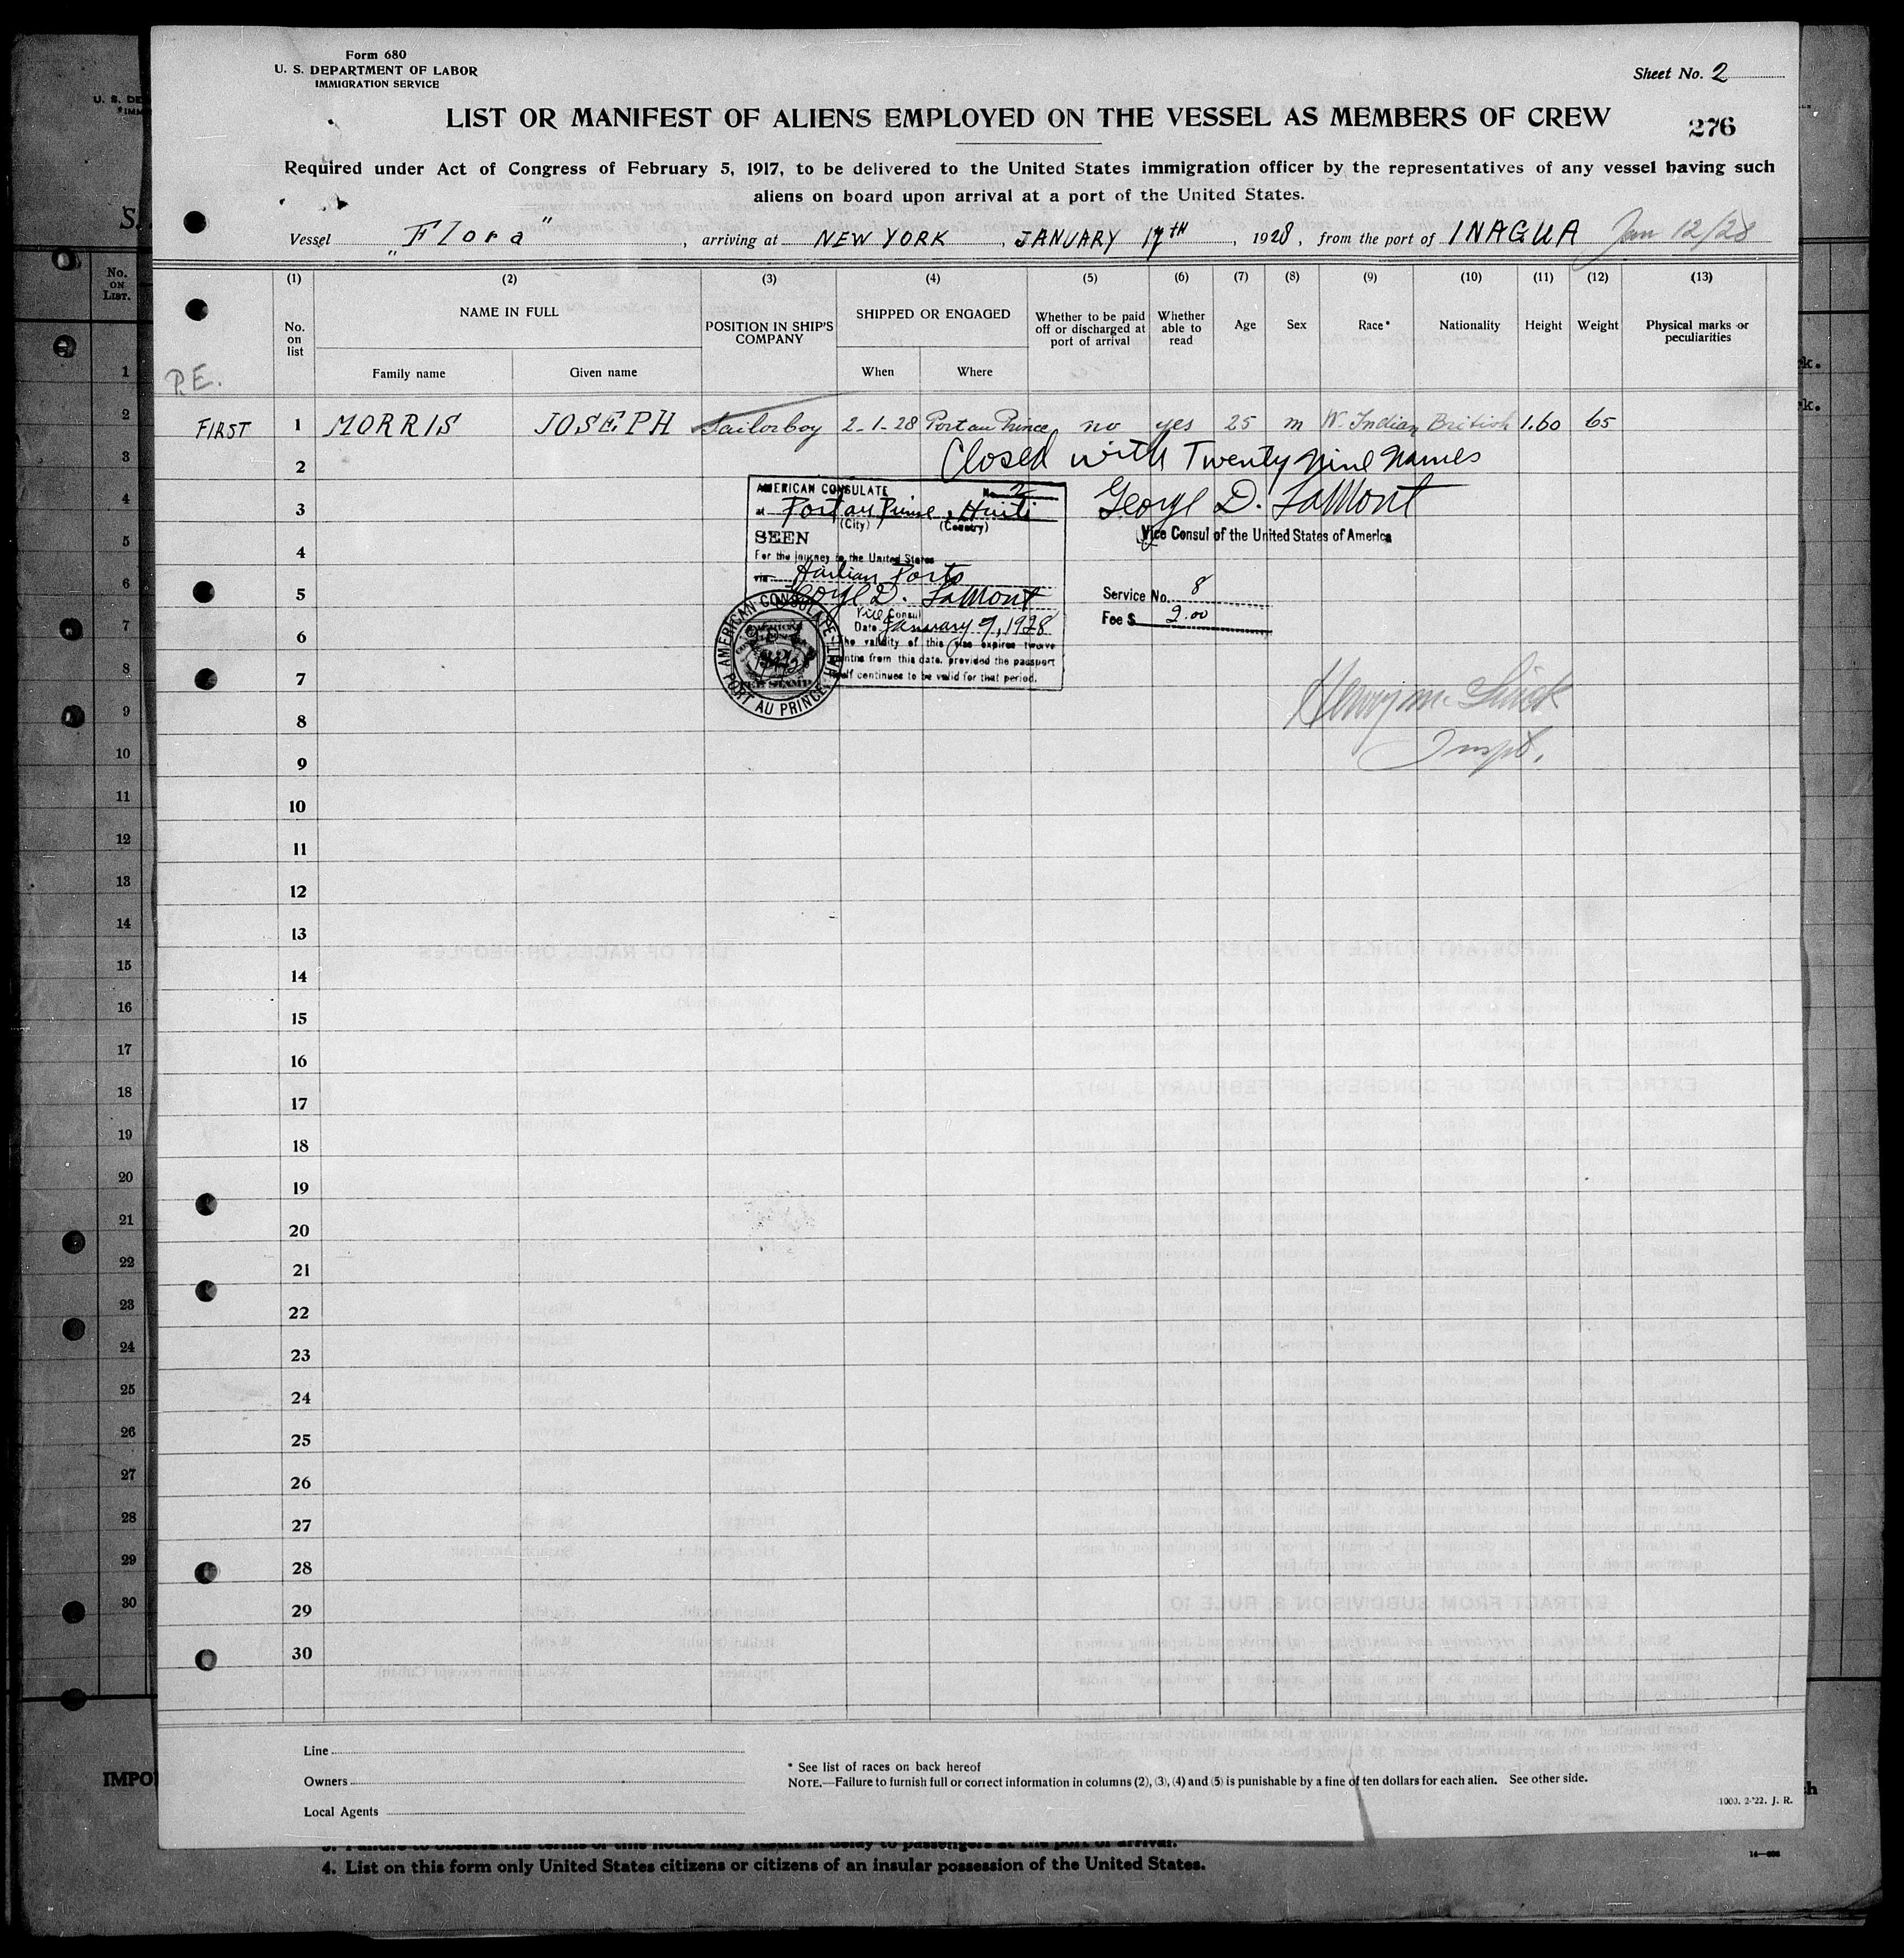 Form 680
U. S. DEPARTMENT OF LABOR
IMMIGRATION SERVICE
Sheet No. 2
LIST OR MANIFEST OF ALIENS EMPLOYED ON THE VESSEL AS MEMBERS OF CREW
276
Required under Act of Congress of February 5, 1917, to be delivered to the United States immigration officer by the representatives of any vessel having such
aliens on board upon arrival at a port of the United States.
Vessel "Flora", arriving at NEW YORK, JANUARY 17th, 1928, from the port of INAGUA Jan 12/28
(1) (2) (3) (4) (5) (6) (7) (8) (9) (10) (11) (12) (13)
No. on list
NAME IN FULL
Family name Given name
POSITION IN SHIP'S COMPANY
SHIPPED OR ENGAGED
When Where
Whether to be paid off or discharged at port of arrival
Whether able to read
Age Sex Race* Nationality Height Weight
Physical marks or peculiarities
P.E.
FIRST 1 MORRIS JOSEPH Sailorboy 2-1-28 Port au Prince no yes 25 m W. Indian British 1.60 65
2 Closed with Twenty nine names
3 George D. LaMont
Vice Consul of the United States of America
AMERICAN CONSULATE No. 2
at Port au Prince, Haiti
(City) (Country)
SEEN
For the journey to the United States
via Haitian Ports
George D. LaMont
Vice Consul
Date January 9, 1928
The validity of this visa expires twelve
months from this date, provided the passport
itself continues to be valid for that period.
AMERICAN CONSULATE
PORT AU PRINCE, HAITI
Service No. 8
Fee $ 2.00
4
5
6
7
8
9
Inspt.
10
11
12
13
14
15
16
17
18
19
20
21
22
23
24
25
26
27
28
29
30
Line
Owners
Local Agents
* See list of races on back hereof
NOTE.—Failure to furnish full or correct information in columns (2), (3), (4) and (5) is punishable by a fine of ten dollars for each alien. See other side.
1000. 2-'22. J. R.
No. ON LIST.
1
2
3
4
5
6
7
8
9
10
11
12
13
14
15
16
17
18
19
20
21
22
23
24
25
26
27
28
29
30
4. List on this form only United States citizens or citizens of an insular possession of the United States.